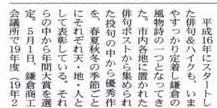 平成16年にスタートし
た俳句&ハイクも、いま
やすっかり定着し鎌倉の
風物詩の一つとなってき
た。市内各地に置かれた
俳句ポストから集められ
た投句の中から優秀作
を、春夏秋冬の季節ごと
にそれぞれ天・地・人と
して表彰している。それ
らの中から年間大賞を選
定。5月1日、鎌倉商工
会議所で19年度（19年